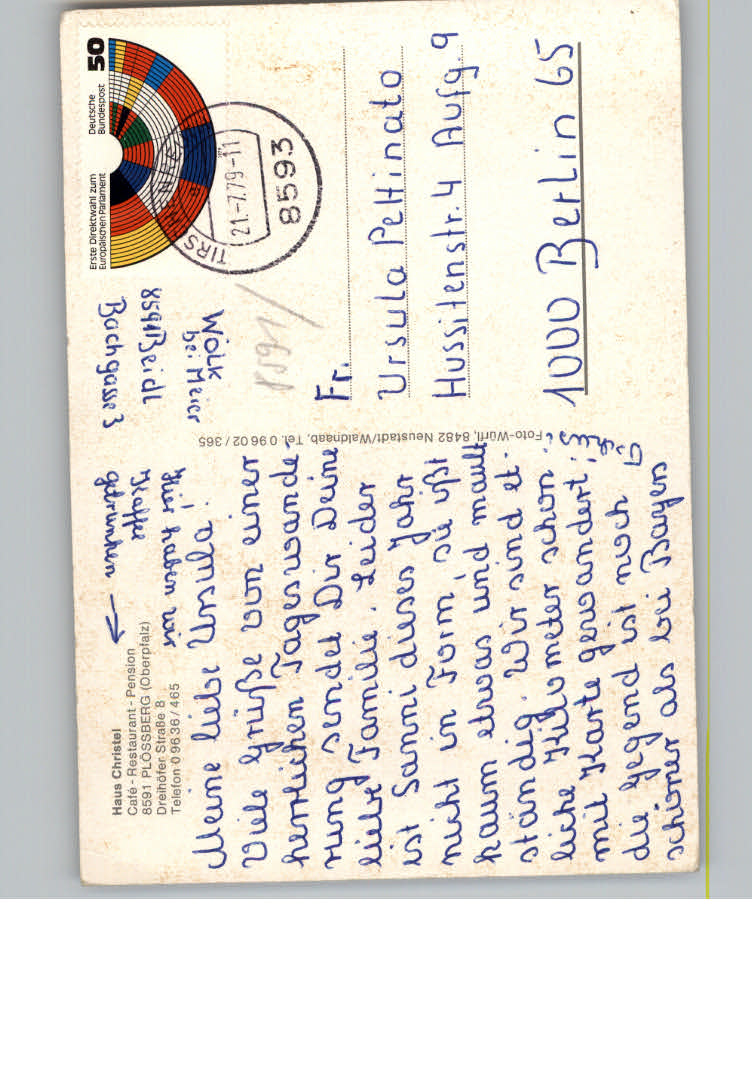 Haus Christel
Café - Restaurant - Pension
8591 PLÖSSBERG (Oberpfalz)
Dreihöfer Straße 8
Telefon 0 96 36 / 465
← Hier haben wir
Kaffee
getrunken
Meine liebe Ursula!
Viele Grüße von einer
herrlichen Tageswande-
rung sendet Dir Deine
liebe Familie. Leider
ist Sanni dieses Jahr
nicht in Form, sie ißt
kaum etwas und mault
ständig. Wir sind et-
liche Kilometer schon
mit Karte gewandert,
die Gegend ist noch
schöner als bei Bayers
Foto-Würfl, 8482 Neustadt/Waldnaab. Tel. 0 96 02 / 365
Wolk
bei Meier
8591 Beidl
Bachgasse 3
Erste Direktwahl zum
Europäischen Parlament
Deutsche
Bundespost
50
TIRSCHENREUTH
21.-7.79-11
8593
Fr.
Ursula Peltinato
Hussitenstr. 4 Aufg. 9
1000 Berlin 65